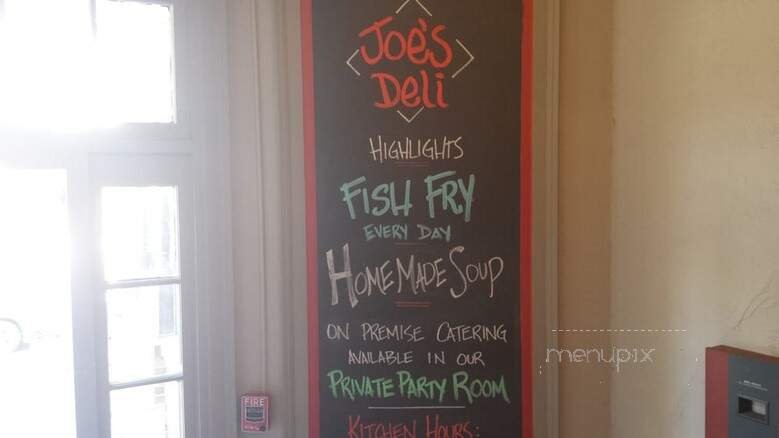 Joe's
Deli
HIGHLIGHTS
FISH FRY
EVERY DAY
HOMEMADE SOUP
ON PREMISE CATERING
AVAILABLE IN OUR
PRIVATE PARTY ROOM
KITCHEN HOURS:
FIRE
menupix